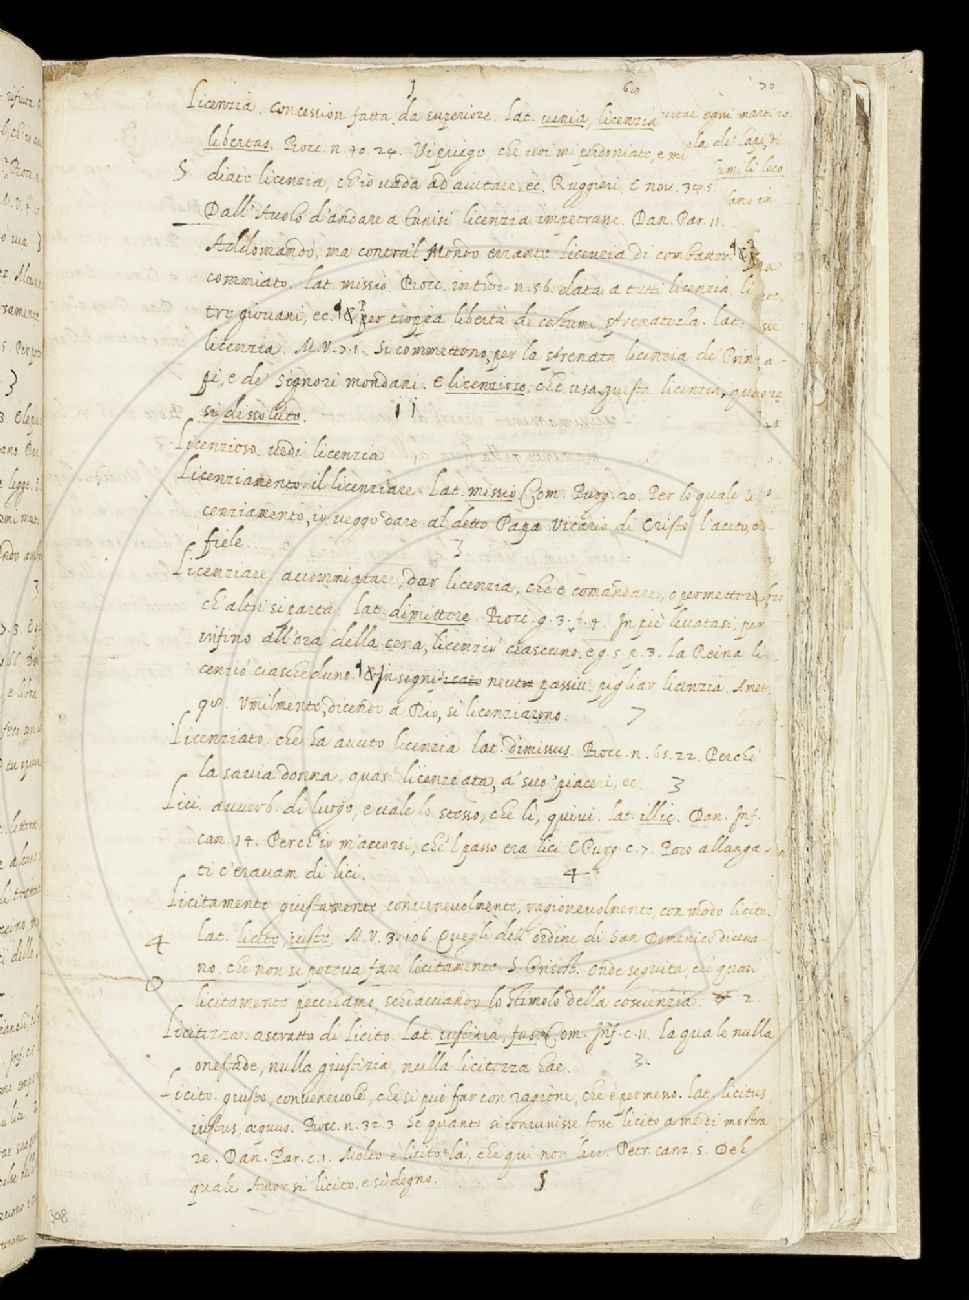 Licenzia. concession fatta da superiore. Lat. venia, licenzia
libertas. Bocc. n. 40. 24. Vi priego, che voi mi perdoniate, e mi
diate licenzia, ch'io vada ad aiutare, ec. Ruggieri. E nov. 34. 5.
Dall'Avolo d'andare a Tunisi licenzia impetrasse. Dan. Par. 11.
Addomandò, ma contra'l Mondo errante licenzia di combatter.
commiato. Lat. missio. Bocc. introd. n. 56. data a tutti licenzia, li
tre giovani, ec. & per troppa libertà di costumi sfrenatezza. Lat.
licenzia. M. V. 7. 1. Si commettono, per la sfrenata licenzia de' Prin
pi, e de' Signori mondani. E licenzioso, che usa questa licenzia, qua
si dissoluto. 11
Licenzioso. vedi licenzia
Licenziamento. il licenziare. Lat. missio. Com. Purg. 20. Per lo quale li
cenziamento, io veggo dare al detto Papa Vicario di Cristo l'aceto, e'l
fiele. 3
Licenziare, accommiatare, dar licenzia, che è comandare, o permettere,
ch'altri si parta. Lat. dimittere. Bocc. g. 3. f. 4. In piè levatasi, per
infino all'ora della cena, licenziò ciascuno. e g. 5. p. 3. La Reina li
cenziò ciascheduno. & In signific. neutr passiu. pigliar licenzia. Amet.
90. Umilmente, dicendo a Dio, si licenziarono. 7
Licenziato. che ha avuto licenzia Lat. dimissus. Bocc. n. 65. 22. Perchè
la savia donna, quasi licenziata, a' suo' piaceri, ec. 3
Lici. avverb. di luogo, e vale lo stesso, che lì, quivi. Lat. illic. Dan. Inf.
can. 14. Perch'io m'accorsi, che'l passo era lici. E Purg. c. 7. Poco allunga
ti c'eravam di lici. 4
Licitamente giustamente, convenevolmente, ragionevolmente, con modo licito.
Lat. licite, iuste. M. V. 3. 106. Quegli dell'ordine di San Domenico diceva-
no. che non si poteva fare licitamente. S. Grisost. Onde seguita che quasi
licitamente pecchiamo, schiacciando lo stimolo della coscienzia. 2
Licitezza. astratto di licito. Lat. iustitia, fas. Com. Inf. c. 11. La quale nulla
onestade, nulla giustizia, nulla licitezza hae. 3
Licito. giusto, convenevole, che si può far con ragione, che è permesso. Lat. licitus,
iustus, aequus. Bocc. n. 32. 3 Se quanto si convenisse fosse licito a me di mostra
re. Dan. Par. c. 1. Molto è licito là, che qui non lice. Petr. canz. 5. Deh
quale Amor sì licito, e sì degno. 5
308